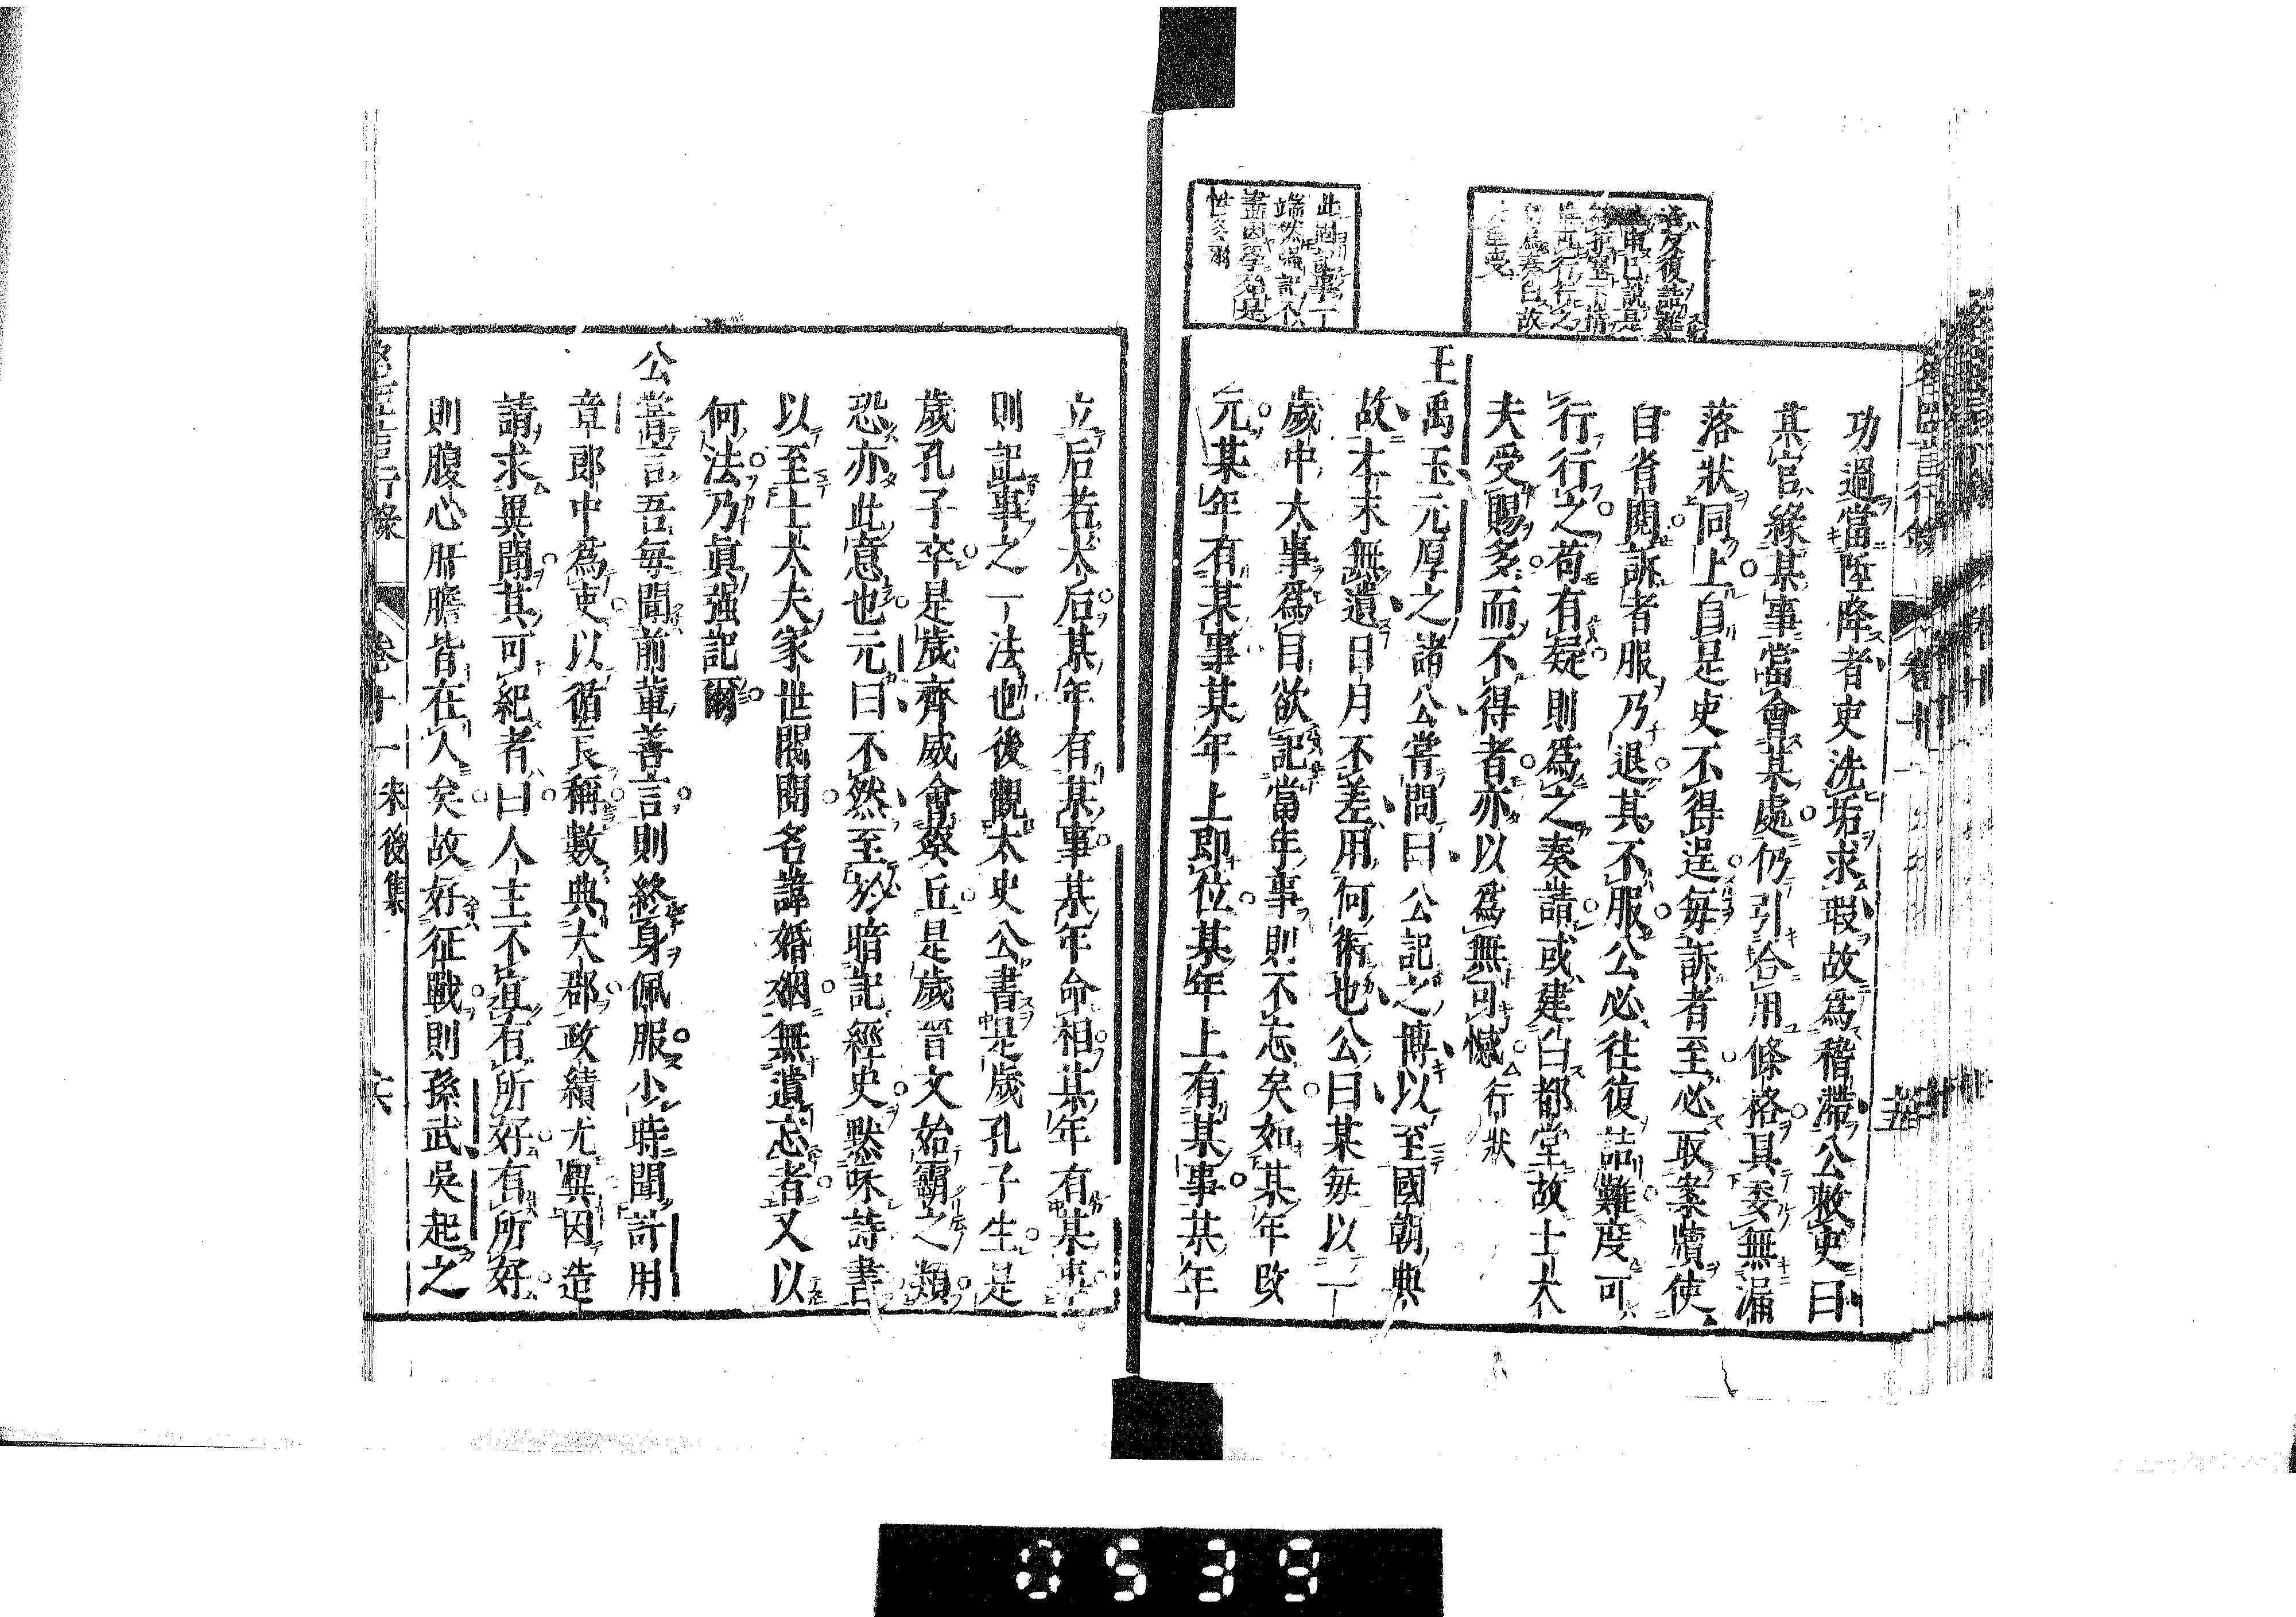 徃反復詰難
此迺記事一
端然強記不
盡因學殆是
性爾
功過當陞降者吏洗垢求瑕故為稽滯公敕吏曰
某官緣某事當會某處仍引合用條格具委無漏
落狀同上自是吏不得逞每訴者至必取案牘使
自省閱訴者服乃退其不服公必往復詰難度可
行行之苟有疑則為之奏請或建白都堂故士大
夫受賜多而不得者亦以為無可憾行狀
王禹玉元厚之諸公嘗問曰公記之博以至國朝典
故本末無遺日月不差用何術也公曰某每以一
歲中大事為目欲記當年事則不忘矣如某年改
元某年有某事某年上即位某年上有某事某年
立后若太后某年有某事某年命相某年有某事
則記事之一法也後觀太史公書是歲孔子生是
歲孔子卒是歲齊威會葵丘是歲晉文始霸之類
恐亦此意也元曰不然至於暗記經史默誦詩書
以至士大夫家世閥閱名諱婚姻無遺忘者又以
何法乃眞强記爾
公嘗言吾每聞前輩善言則終身佩服少時聞許用
章郎中為吏以循良稱數典大郡政績尤異因造
請求異聞其可紀者曰人主不宜有所好有所好
則腹心肝膽皆在人矣故好征戰則孫武吳起之
名臣言行錄 卷十一 宋後集 六